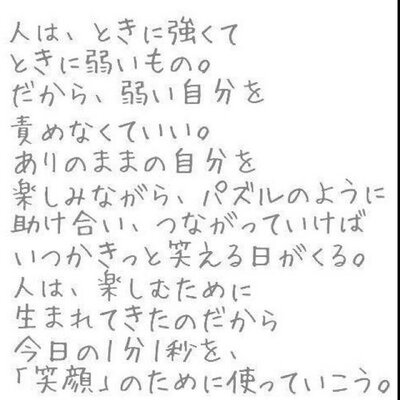 人は、ときに強くて
ときに弱いもの。
だから、弱い自分を
責めなくていい。
ありのままの自分を
楽しみながら、パズルのように
助け合い、つながっていけば
いつかきっと笑える日がくる。
人は、楽しむために
生まれてきたのだから
今日の1分1秒を、
「笑顔」のために使っていこう。